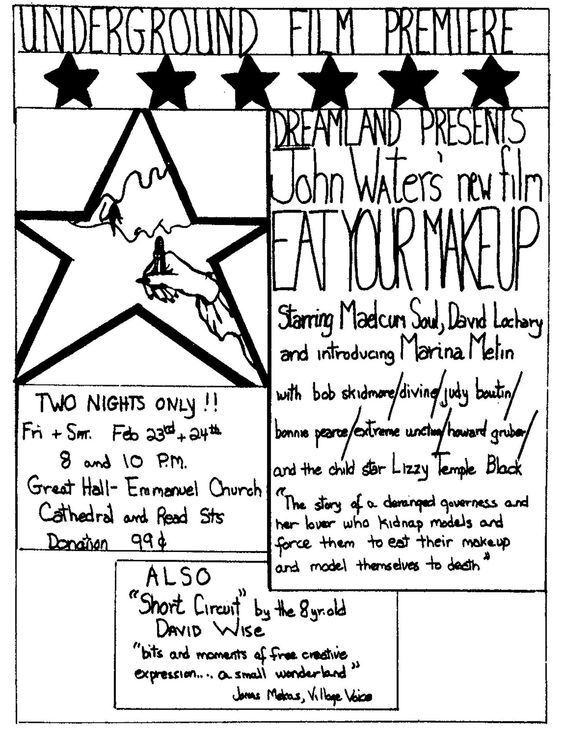 UNDERGROUND FILM PREMIERE
DREAMLAND PRESENTS
John Waters' new film
EAT YOUR MAKEUP
Starring Maelcum Soul, David Lochary
and introducing Marina Melin
with bob skidmore/divine/judy boutin/
bonnie pearce/extreme unction/howard gruber/
and the child star Lizzy Temple Black
"The story of a deranged governess and
her lover who kidnap models and
force them to eat their makeup
and model themselves to death"
TWO NIGHTS ONLY !!
Fri + Sat. Feb 23rd + 24th
8 and 10 P.M.
Great Hall- Emmanuel Church
Cathedral and Read Sts
Donation 99¢
ALSO
"Short Circuit" by the 8 yr. old
DAVID WISE
"bits and moments of free creative
expression.... a small wonderland"
Jonas Mekas, Village Voice